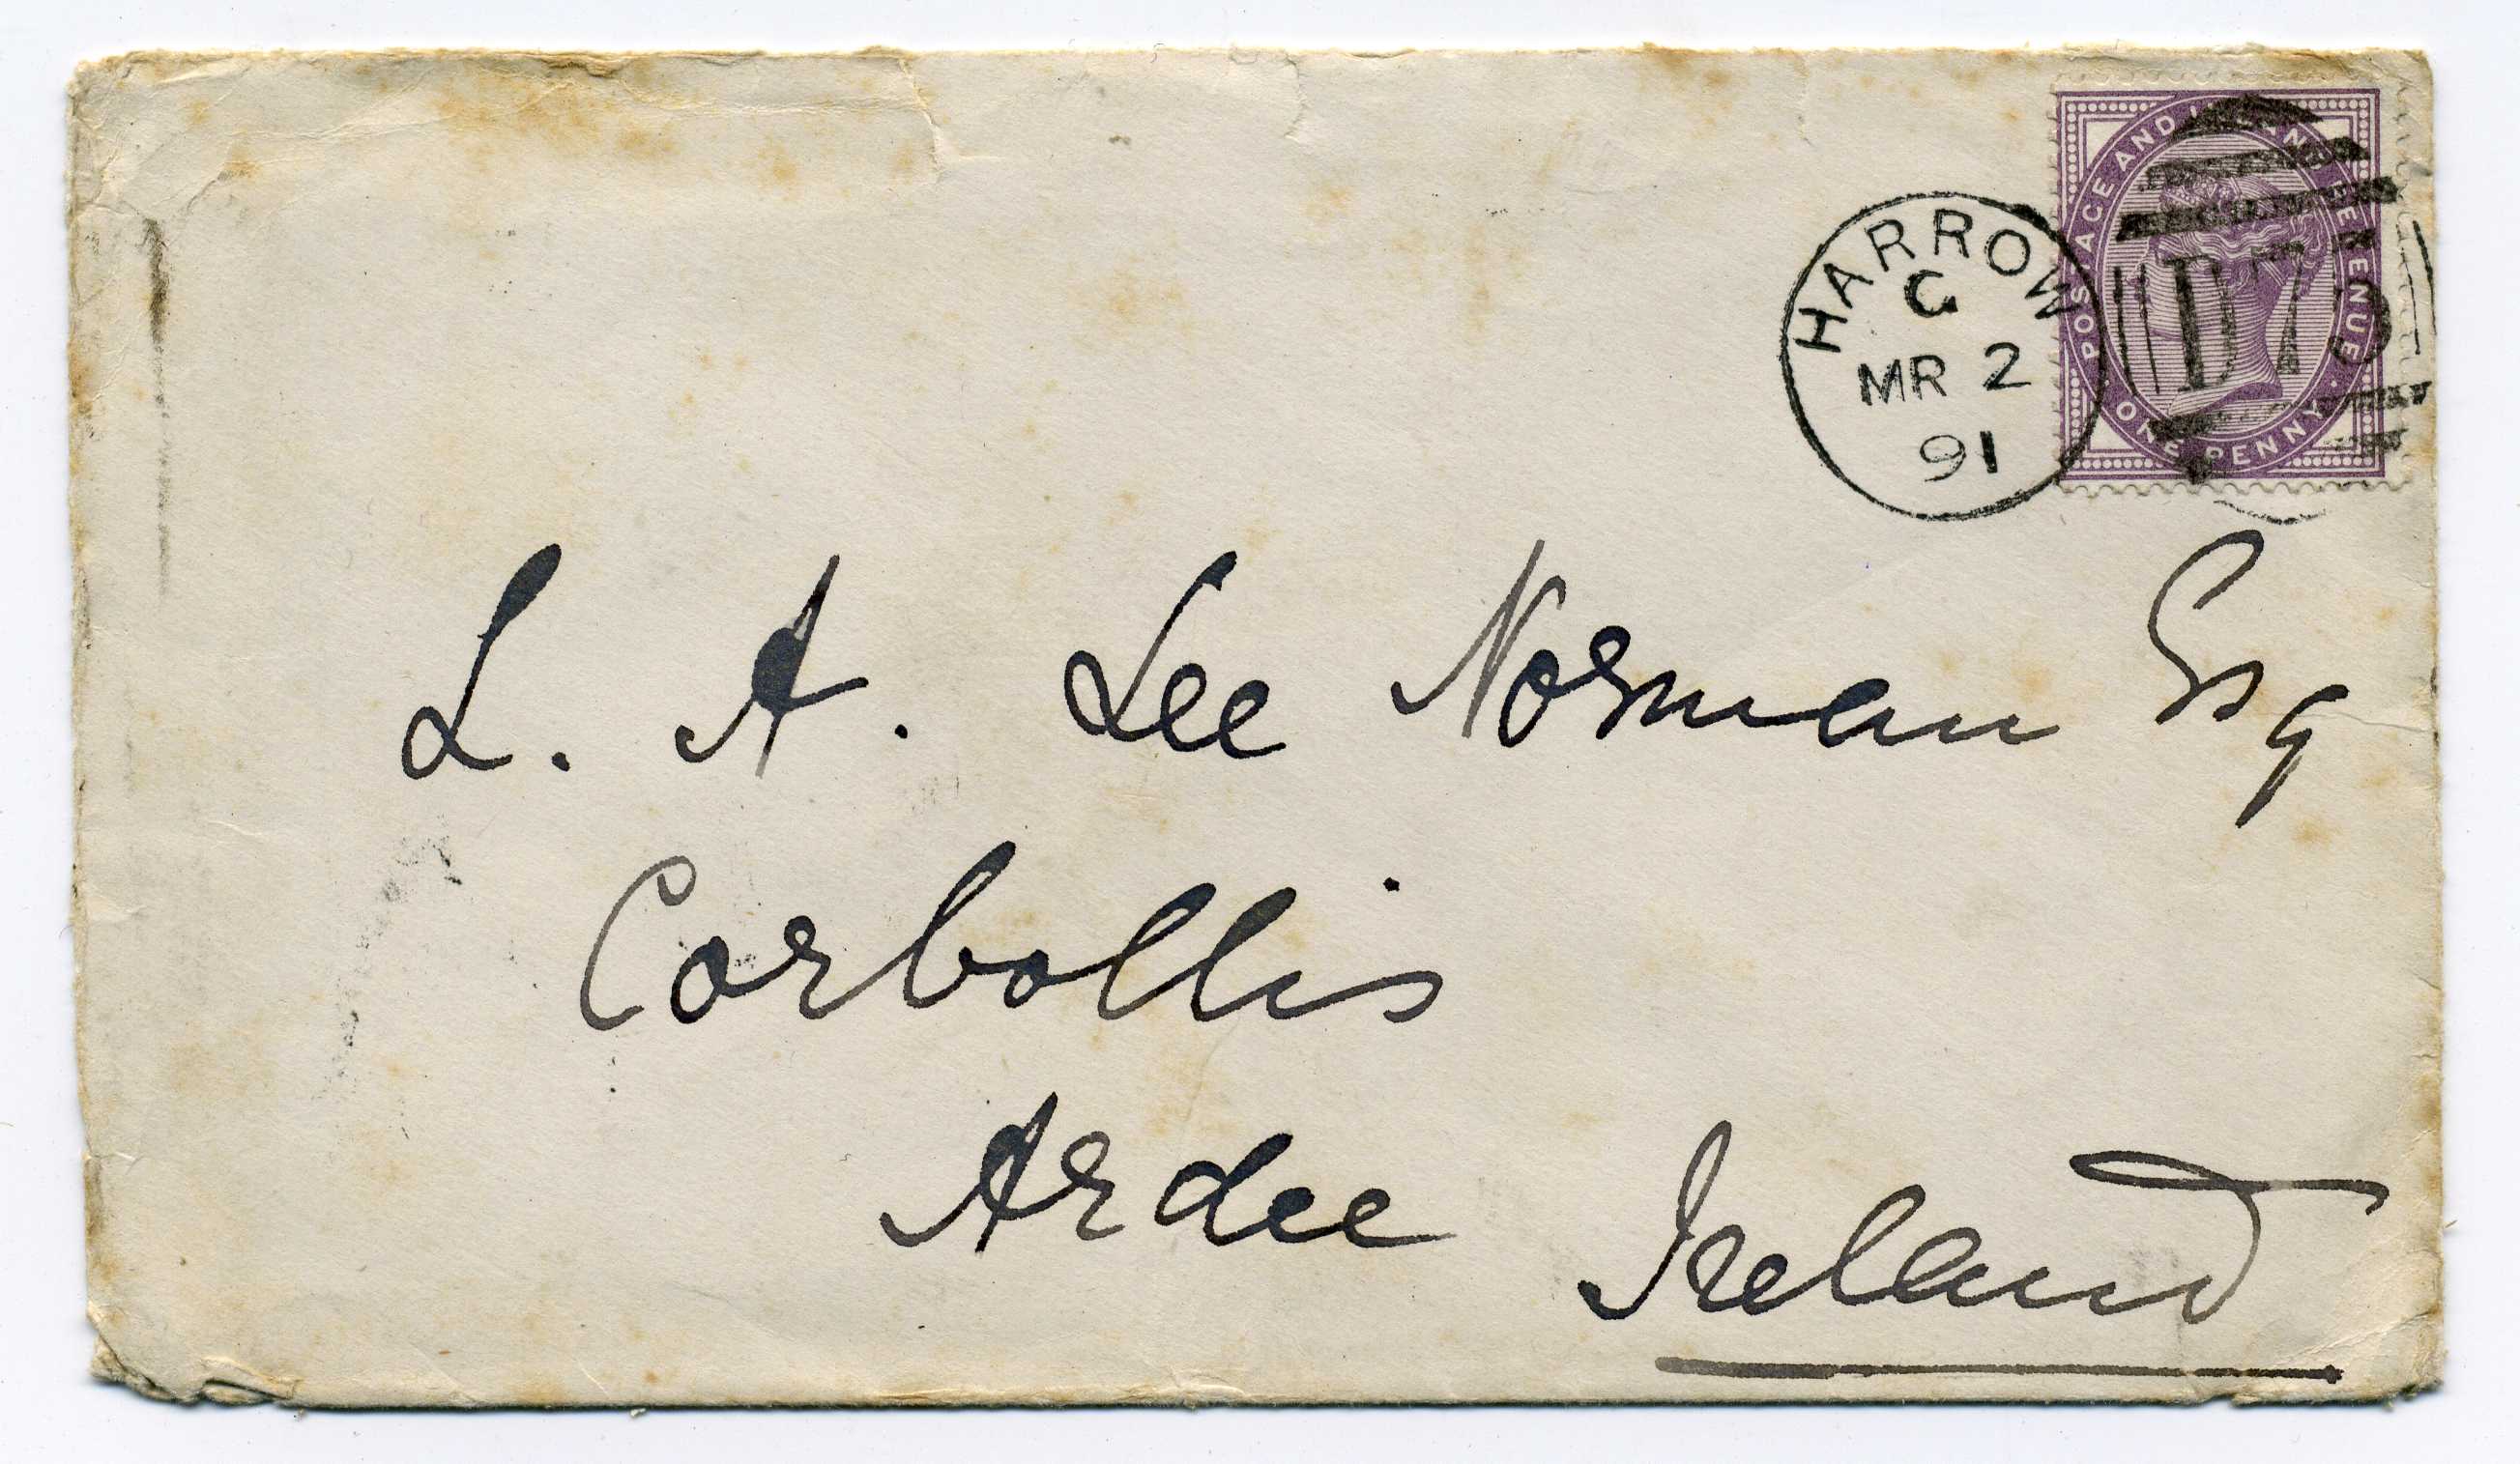 POSTAGE AND INLAND REVENUE
ONE PENNY
HARROW
C
MR 2
91
D
L. A. Lee Norman Esq
Corbollis
Ardee
Ireland